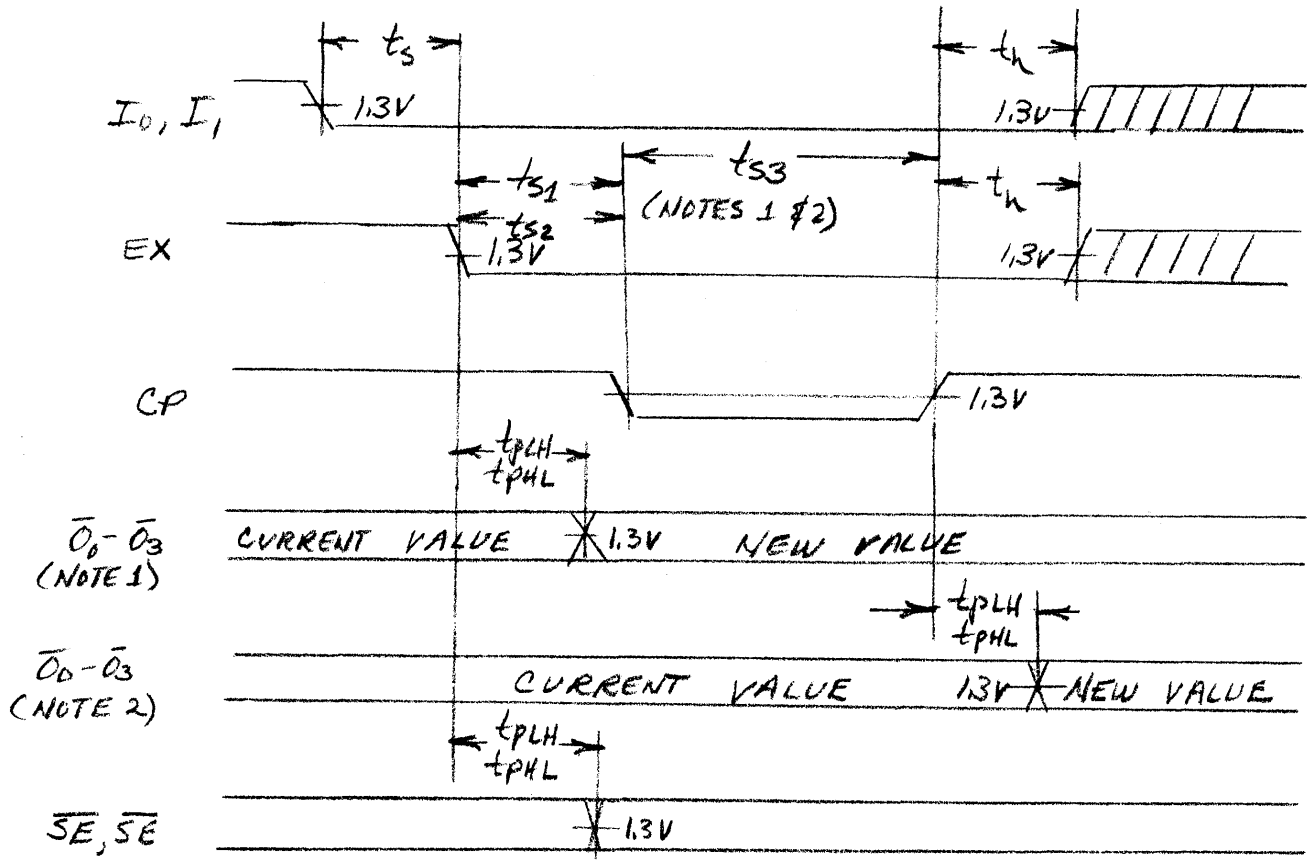 ts
th
I0, I1
1.3V
1.3V
ts1
ts3
th
ts2
(NOTES 1 & 2)
EX
1.3V
1.3V
CP
1.3V
tPLH
tPHL
Ō0-Ō3
(NOTE 1)
CURRENT VALUE
1.3V
NEW VALUE
tPLH
tPHL
Ō0-Ō3
(NOTE 2)
CURRENT VALUE
1.3V
NEW VALUE
tPLH
tPHL
S̅E̅, S̅E̅
1.3V